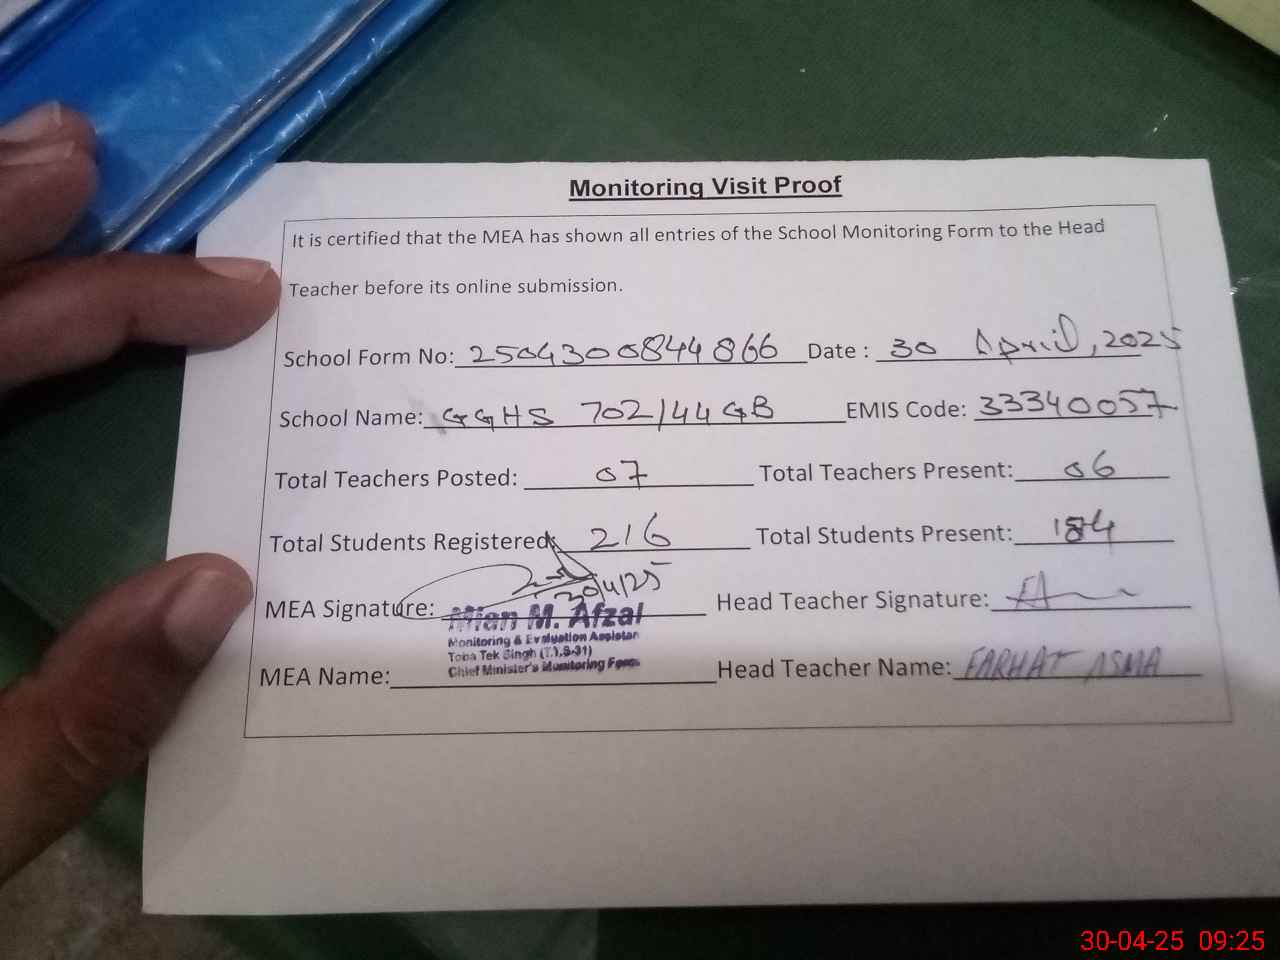 Monitoring Visit Proof
It is certified that the MEA has shown all entries of the School Monitoring Form to the Head
Teacher before its online submission.
School Form No: 2504300844866 Date : 30 April, 2025
School Name: GGHS 702/44 GB EMIS Code: 33340057
Total Teachers Posted: 07 Total Teachers Present: 06
Total Students Registered: 216 Total Students Present: 184
30/4/25
MEA Signature: Head Teacher Signature:
Mian M. Afzal
Monitoring & Evaluation Assistan
Toba Tek Singh (T.T.S-31)
Chief Minister's Monitoring Force
MEA Name: Head Teacher Name: FARHAT ASMA
30-04-25 09:25